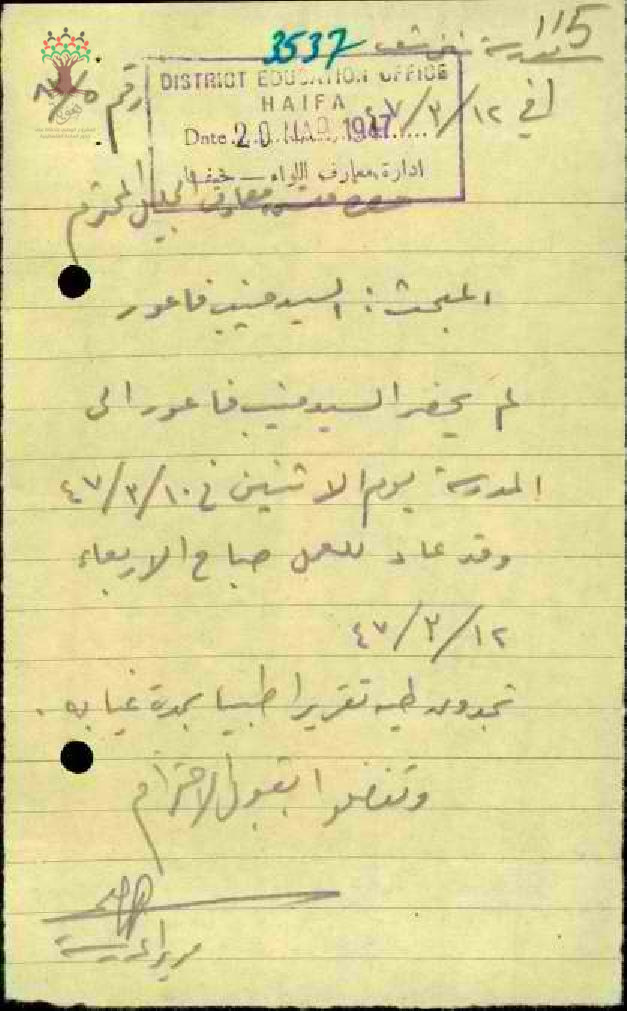 115
3537
مدرسة
DISTRICT EDUCATION OFFICE
HAIFA
Date 20 MAR 1947
ادارة معارف اللواء – حيفا
في ١٢/٣/٤٧
رقم
معارف الجليل المحترم
المبحث: السيد منيب فاعور
لم يحضر السيد منيب فاعور الى
المدرسة يوم الاثنين في ١٠/٣/٤٧
وقد عاد للعمل صباح الاربعاء
١٢/٣/٤٧
تجدون طيه تقريرا طبيا بمدة غيابه.
وتفضلوا بقبول الاحترام
مدير المدرسة